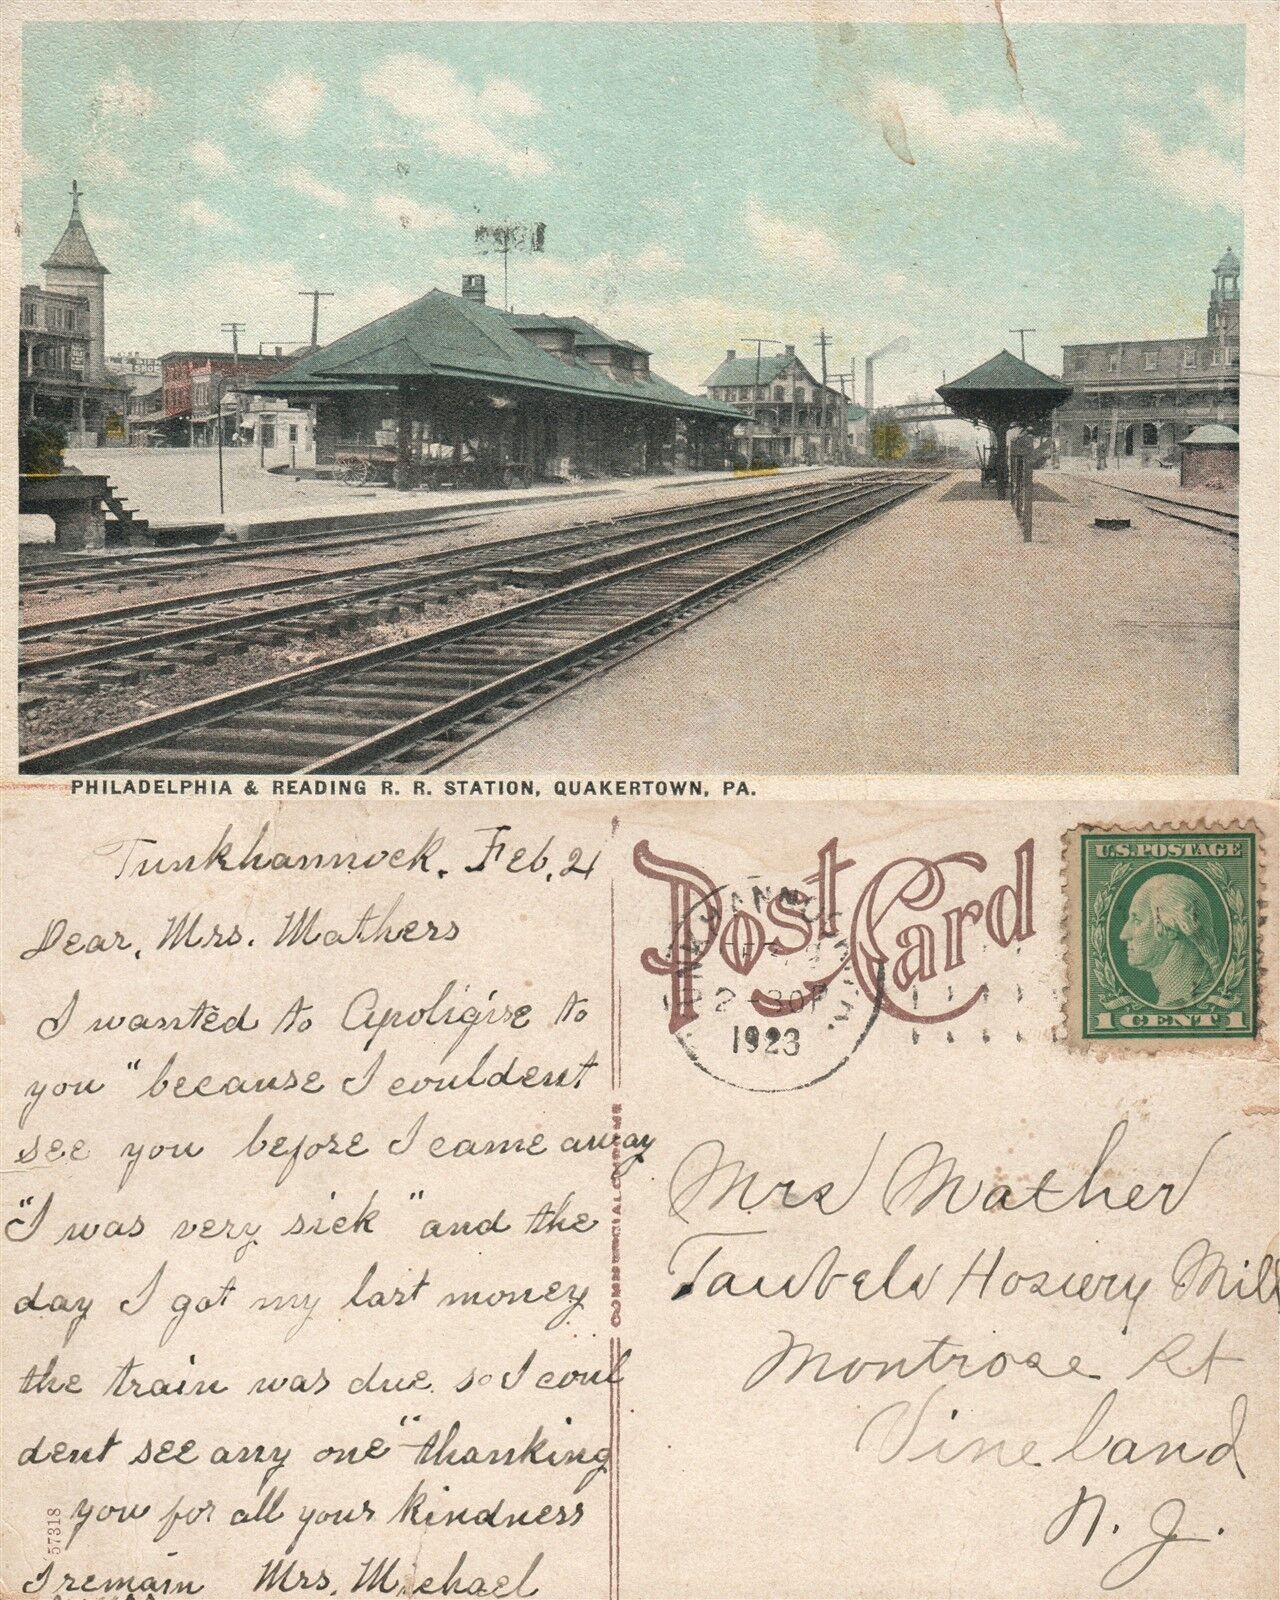 PHILADELPHIA & READING R. R. STATION, QUAKERTOWN, PA.
Tunkhannock. Feb. 21
Dear, Mrs. Mathers
I wanted to Apoligise to
you "because I couldent
see you before I came away
"I was very sick" and the
day I got my last money
the train was due. so I coul
dent see any one" thanking
you for all your kindness
I remain Mrs. Michael
57318
Post Card
2-30P
1923
U.S. POSTAGE
1 CENT 1
Mrs Mather
Taubels Hosiery Mill
Montrose St
Vineland
N. J.